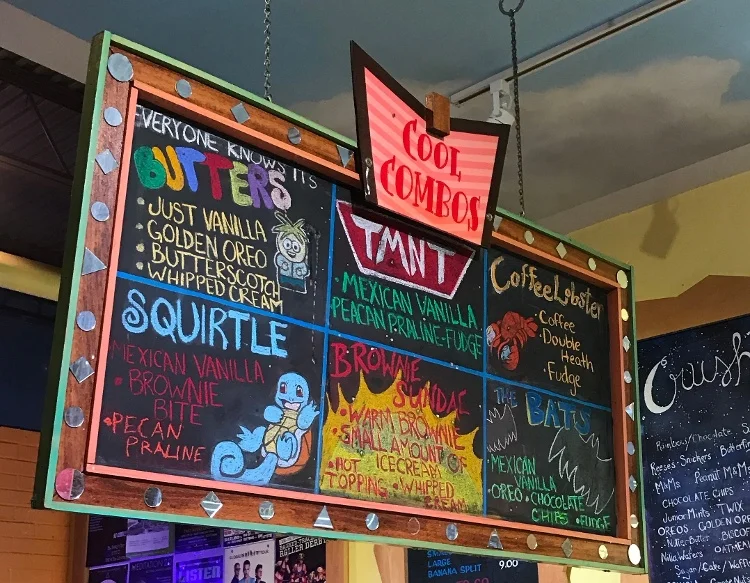 COOL
COMBOS
EVERYONE KNOWS IT'S
BUTTERS
• JUST VANILLA
• GOLDEN OREO
• BUTTERSCOTCH
• WHIPPED CREAM
TMNT
• MEXICAN VANILLA
PEACAN PRALINE-FUDGE
Coffee Lobster
• Coffee
• Double
Heath
• Fudge
SQUIRTLE
MEXICAN VANILLA
• BROWNIE
BITE
• PECAN
PRALINE
BROWNIE
SUNDAE
• WARM BROWNIE
• SMALL AMOUNT OF
ICECREAM
• HOT
TOPPING • WHIPPED
CREAM
THE BATS
MEXICAN
VANILLA
OREO • CHOCOLATE
CHIPS • FUDGE
Crush
Rainbow/Chocolate
Reese's Snickers Butterfin
M&Ms Peanut M&M
CHOCOLATE CHIPS
Junior Mints TWIX
OREOS GOLDEN ORE
Nilla Wafers OATME
LARGE
BANANA SPLIT 9.00
ROLLER DERBY